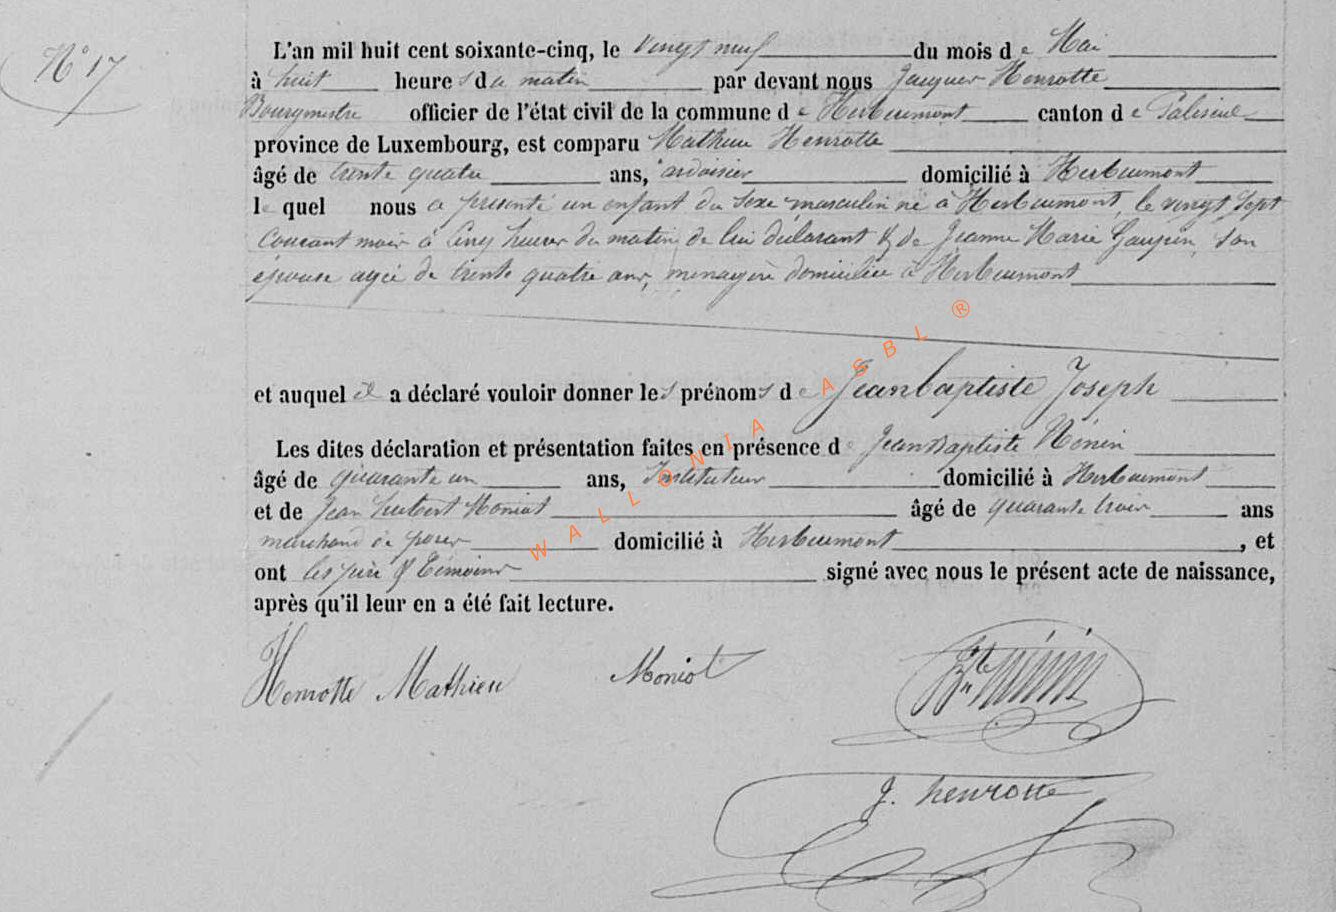 N° 17
L'an mil huit cent soixante-cinq, le vingt neuf du mois de Mai
à huit heures du matin par devant nous Jacques Henrotte
Bourgmestre officier de l'état civil de la commune de Herbeumont canton de Paliseul
province de Luxembourg, est comparu Mathieu Henrotte
âgé de trente quatre ans, ardoisier domicilié à Herbeumont
le quel nous a présenté un enfant du sexe masculin né à Herbeumont, le vingt sept
courant mois à cinq heures du matin, de lui déclarant & de Jeanne Marie son
épouse agée de trente quatre ans, menagère domiciliée à Herbeumont
et auquel il a déclaré vouloir donner les prénoms de Jean baptiste Joseph
Les dites déclaration et présentation faites en présence de Jean Baptiste Nénin
âgé de quarante un ans, Instituteur domicilié à Herbeumont
et de Jean hubert Moniot âgé de quarante trois ans
marchand de porcs domicilié à Herbeumont, et
ont les père & témoins signé avec nous le présent acte de naissance,
après qu'il leur en a été fait lecture.
Henrotte Mathieu Moniot Bte nénin
J. henrotte
WALLONIA ASBL ®